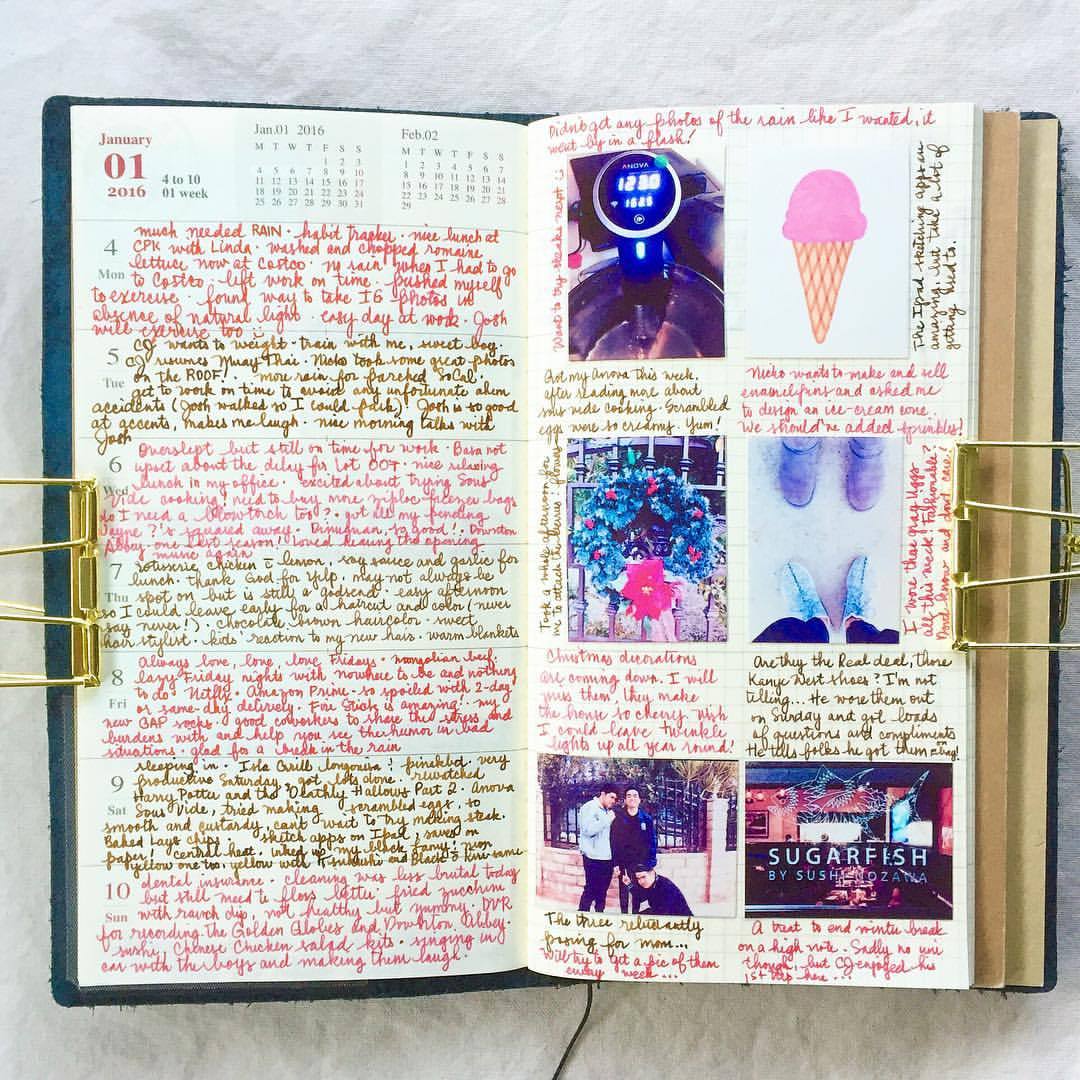 January
01
2016
4 to 10
01 week
Jan.01 2016
M T W T F S S
1 2 3
4 5 6 7 8 9 10
11 12 13 14 15 16 17
18 19 20 21 22 23 24
25 26 27 28 29 30 31
Feb.02
M T W T F S S
1 2 3 4 5 6 7
8 9 10 11 12 13 14
15 16 17 18 19 20 21
22 23 24 25 26 27 28
29
4
Mon
much needed RAIN · habit tracker · nice lunch at
CPK with Linda · washed and chopped romaine
lettuce now at Costco · no rain when I had to go
to Costco · left work on time · pushed myself
to exercise · found way to take IG photos in
absence of natural light · easy day at work · Josh
will exercise too
5
Tue
CJ wants to weight-train with me, sweet boy ·
CJ resumes Muay Thai · Nicko took some great photos
on the ROOF! · more rain for parched SoCal ·
get to work on time to avoid any unfortunate ahem
accidents (Josh walked so I could park)! Josh is so good
at accents, makes me laugh · nice morning talks with
Josh
6
Wed
Overslept but still on time for work · Basa not
upset about the delay for Lot 007 · nice relaxing
lunch in my office · excited about trying Sous
Vide cooking! need to buy more ziploc freezer bags
do I need a blowtorch too? · got all my pending
Wayne ?'s squared away · Dinuguan, so good! · Downton
Abbey one last season! loved hearing the opening
music again
7
Thu
rotisserie chicken c lemon, soy sauce and garlic for
lunch · thank God for Yelp · may not always be
spot on but is still a godsend · easy afternoon
so I could leave early for a haircut and color (never
say never!) · chocolate brown haircolor · sweet
hair stylist · kids' reaction to my new hair · warm blankets
8
Fri
Always love, love, love Fridays · mongolian beef,
lazy Friday nights with nowhere to be and nothing
to do · Netflix · Amazon Prime - so spoiled with 2-day
or same-day delivery · Fire Stick is amazing · my
new GAP socks · good coworkers to share the stress and
burdens with and help you see the humor in bad
situations · glad for a break in the rain
9
Sat
sleeping in · Isla Grill longanisa! pinakbet · very
productive Saturday, got lots done · rewatched
Harry Potter and the Deathly Hallows Part 2 · Anova
Sous Vide, tried making scrambled eggs, so
smooth and custardy, can't wait to try making steak ·
Baked Lays chips · sketch apps on Ipad, saves on
paper · central heat · inked up my black Lamy! non
yellow one too · yellow with and Black c Kiri-same
10
Sun
dental insurance · cleaning was less brutal today
but still need to floss better · fried zucchini
with ranch dip, not healthy but yummy · DVR
for recording the Golden Globes and Downton Abbey ·
sushi · Chinese Chicken salad kits · singing in
car with the boys and making them laugh ·
Didn't get any photos of the rain like I wanted, it
went by in a flash!
Want to try steaks next :)
ANOVA
123.0
162.5
The Ipad sketching apps are
amazing, but take a lot of
getting used to.
Got my Anova this week,
after reading more about
sous vide cooking. Scrambled
eggs were so creamy. Yum!
Nicko wants to make and sell
enamel pins and asked me
to design an ice-cream cone.
We should've added sprinkles!
Took a whole afternoon for
me to attach the leaves! flowers
I wore those gray Uggs
all this week. Fashionable?
Don't know and don't care!
Christmas decorations
are coming down. I will
miss them, they make
the house so cheery. Wish
I could leave twinkle
lights up all year round!
Are they the Real deal, those
Kanye West shoes? I'm not
telling... He wore them out
on Sunday and got loads
of questions and compliments
He tells folks he got them on ebay!
SUGARFISH
BY SUSHI NOZAWA
The three reluctantly
posing for mom...
Will try to get a pic of them
every week...
A treat to end winter break
on a high note. Sadly no uni
though, but CJ enjoyed his
1st trip here...